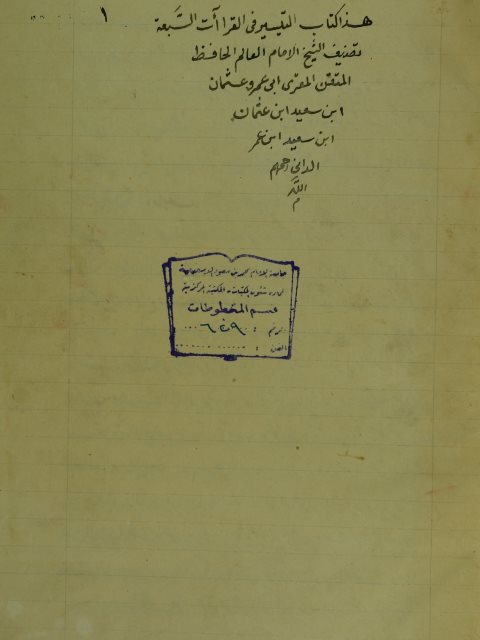 ١
هذا كتاب التيسير فى القراآت السَّبعة
تصنيف الشيخ الامام العالم الحافظ
المتقن المقرى ابى عمرو عثمان
ابن سعيد ابن عثمان
ابن سعيد ابن عمر
الدانى رحمهم
اللّه
م
جامعة الامام محمد بن سعود الاسلامية
عمادة شئون المكتبات - المكتبة المركزية
قسم المخطوطات
رقم : ٦٢٩